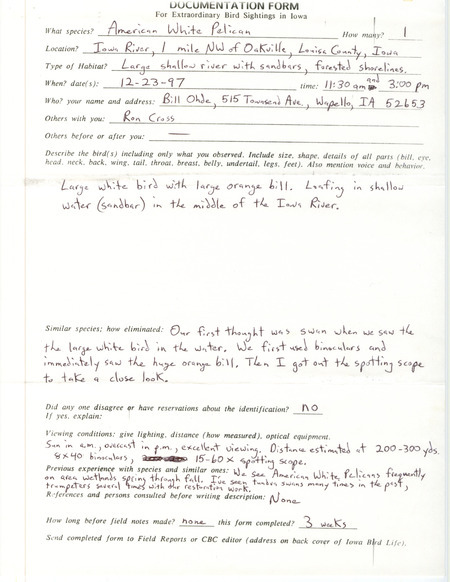 DOCUMENTATION FORM
For Extraordinary Bird Sightings in Iowa
What species? American White Pelican How many? 1
Location? Iowa River, 1 mile NW of Oakville, Louisa County, Iowa
Type of Habitat? Large shallow river with sandbars, forested shorelines.
When? date(s): 12-23-97 time: 11:30 am and 3:00 pm
Who? your name and address: Bill Ohde, 515 Townsend Ave, Wapello, IA 52653
Others with you: Ron Cross
Others before or after you: —
Describe the bird(s) including only what you observed. Include size, shape, details of all parts (bill, eye,
head, neck, back, wing, tail, throat, breast, belly, undertail, legs, feet). Also mention voice and behavior.
Large white bird with large orange bill. Loafing in shallow
water (sandbar) in the middle of the Iowa River.
Similar species; how eliminated: Our first thought was swan when we saw the
the large white bird in the water. We first used binoculars and
immediately saw the huge orange bill. Then I got out the spotting scope
to take a close look.
Did any one disagree or have reservations about the identification? no
If yes, explain:
Viewing conditions: give lighting, distance (how measured), optical equipment.
Sun in a.m., overcast in p.m., excellent viewing. Distance estimated at 200-300 yds.
8x40 binoculars, 15-60x spotting scope.
Previous experience with species and similar ones: We see American White Pelicans frequently
on area wetlands spring through fall. I've seen tundra swans many times in the past,
trumpeters several times with our restoration work.
References and persons consulted before writing description: None
How long before field notes made? none this form completed? 3 weeks
Send completed form to Field Reports or CBC editor (address on back cover of Iowa Bird Life).